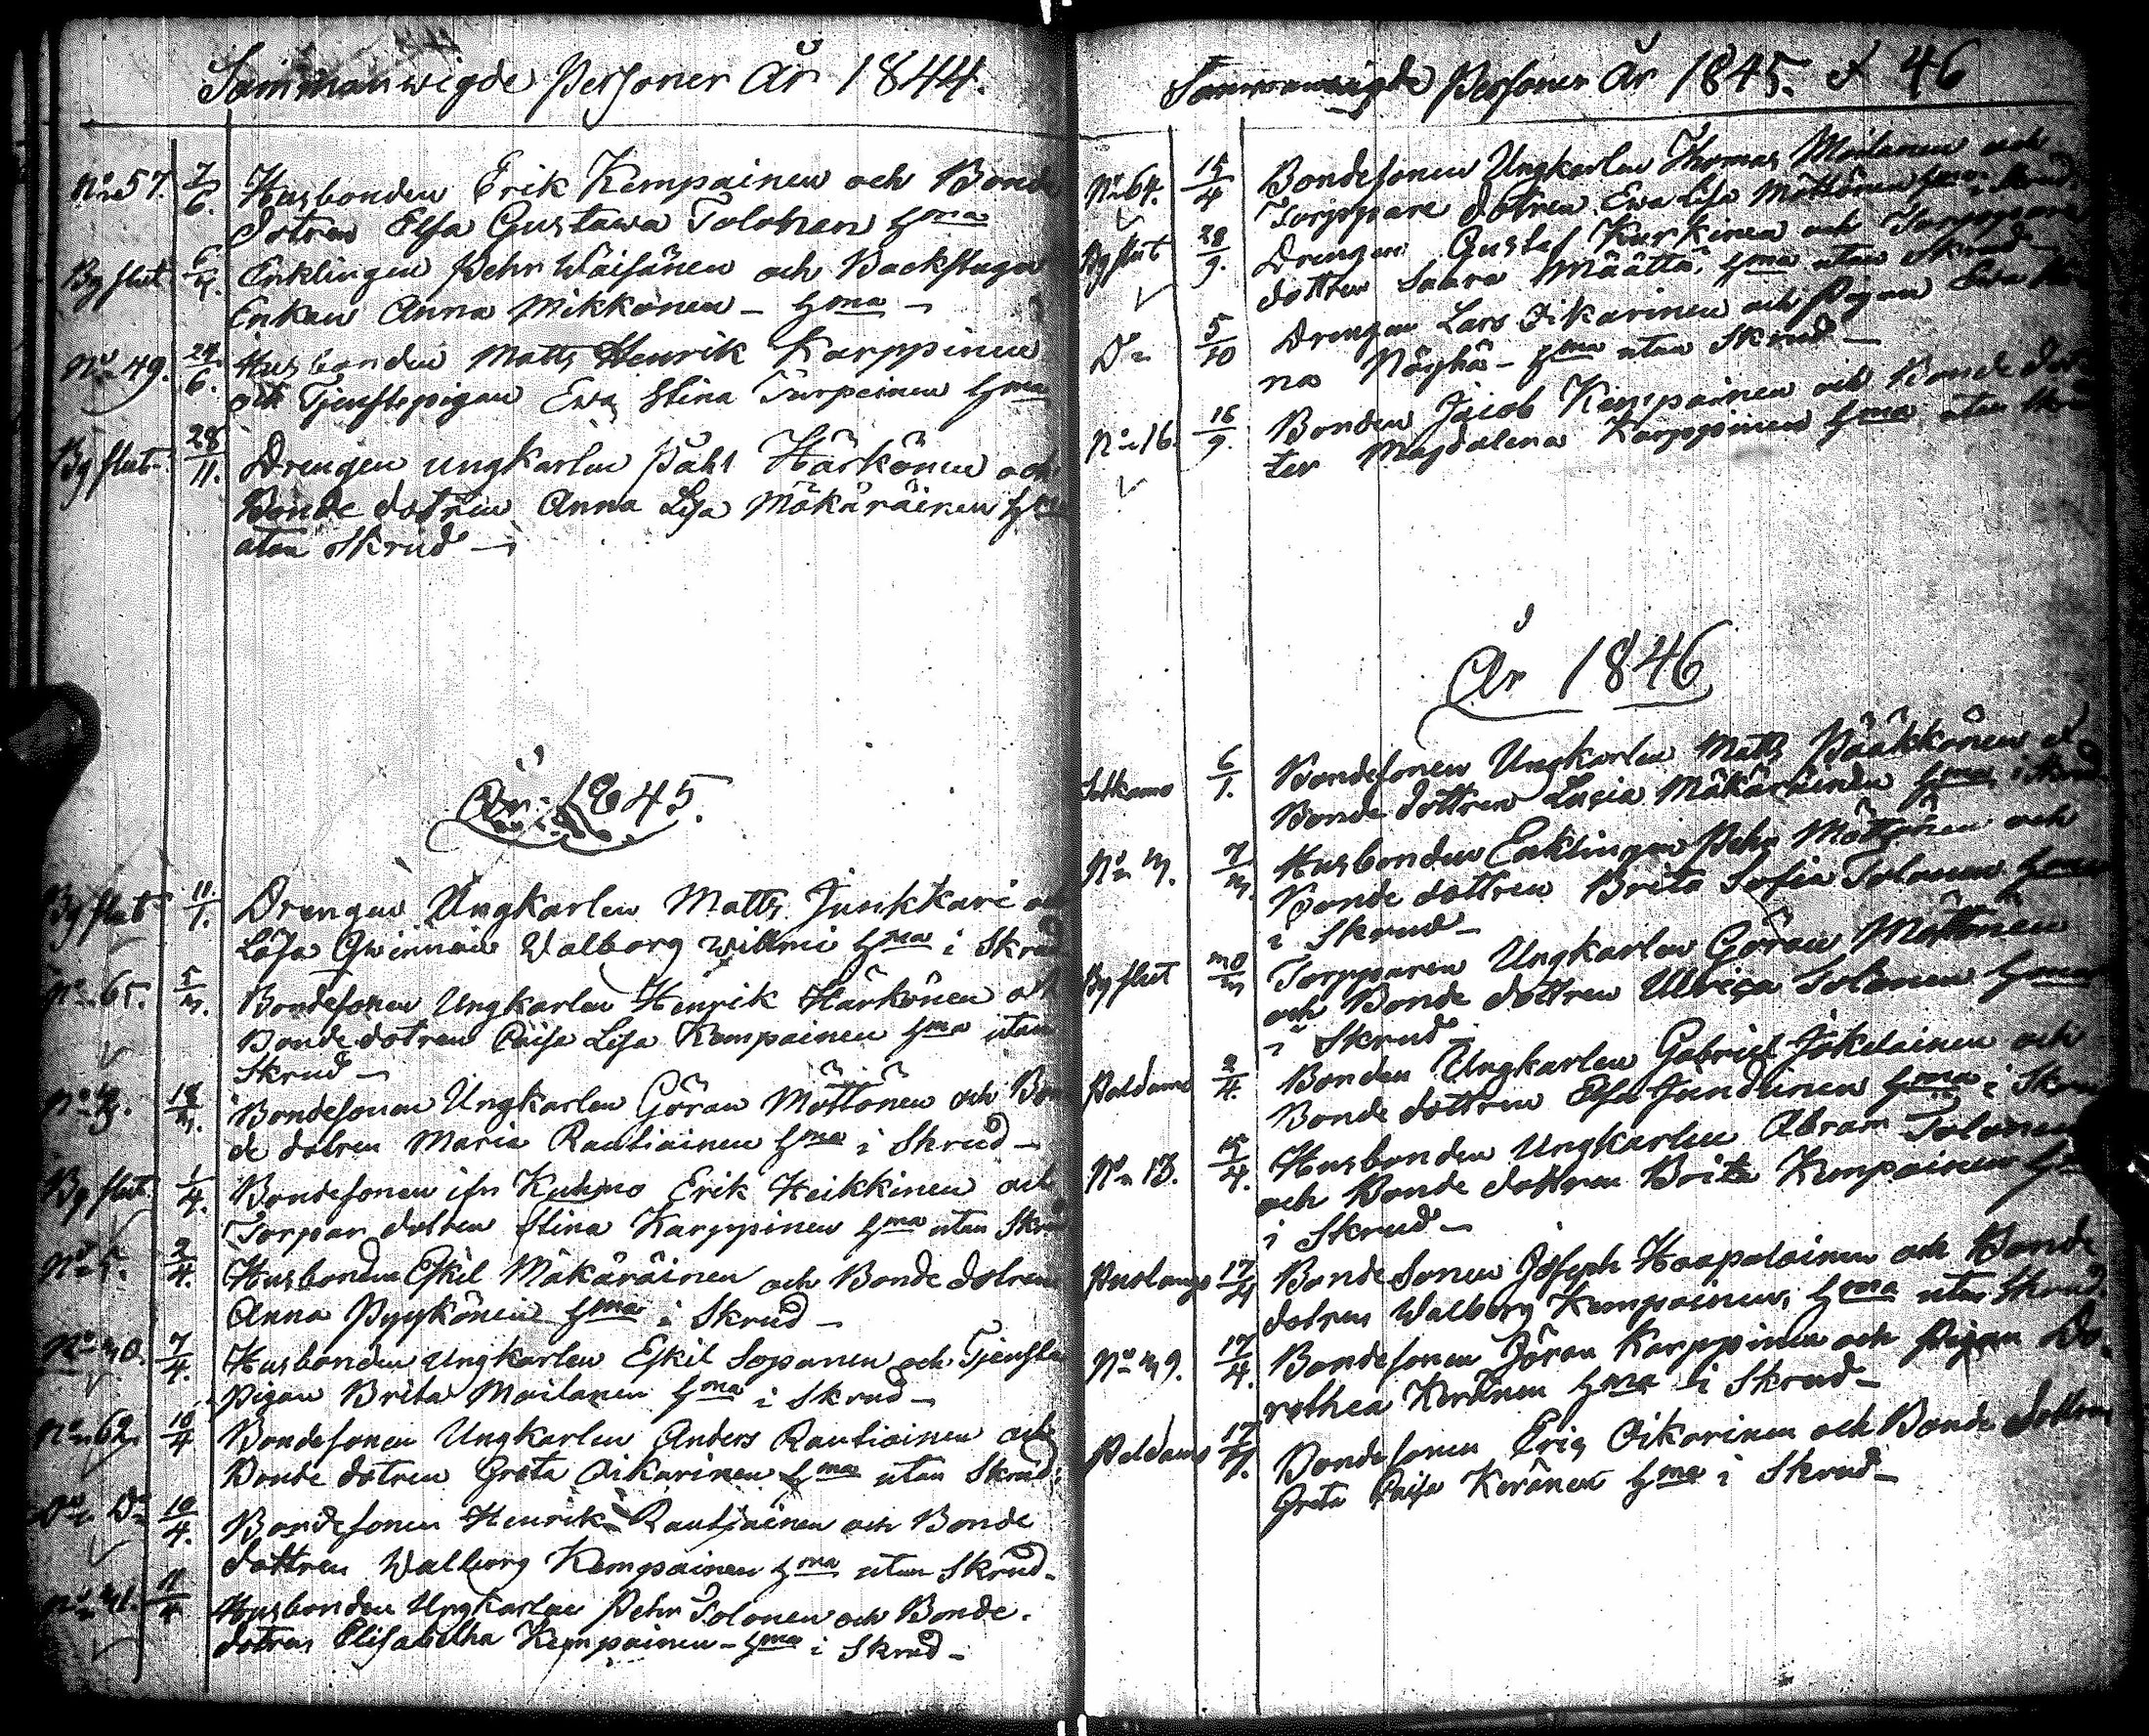 Sammanwigde Personer År 1844.
No 57. 7/6. Husbonden Erik Kempainen och Bonde
dotren Elsa Gustawa Tolonen Hma
Byslut 6/4. Enklingen Pehr Wäisänen och Backstugu
Enkan Anna Mikkonen - Hma -
No 49. 24/6. Husbonden Matts Henrik Karppinen
och Tjenstepigan Ewa Stina Turpeinen Hma
Byslut 28/11. Drengen ungkarlen Påhl Härkönen och
Bonde dotren Anna Lisa Mäkäräinen
utan Skrud -
År 1845.
Byslut 11/1. Drengen Ungkarlen Matts Junkkari och
Lösa Qwinnan Walborg Hma i Skrud
No 65. Bondesonen Ungkarlen Henrik Härkönen och
Bonde dotren Caisa Lisa Kempainen Hma utan
Skrud -
Bondesonen Ungkarlen Göran Möttönen och Bon
de dotren Maria Rautiainen Hma i Skrud -
Byslut 1/4. Bondesonen ifrn Kuhmo Erik Heikkinen och
Torpar dotren Stina Karppinen Hma utan Skrud
No 5. 2/4. Husbonden Eskil Mäkäräinen och Bonde dotren
Anna Pyykönen Hma i Skrud -
7/4. Husbonden Ungkarlen Eskil Sopanen och Tjenste
pigan Brita Moilanen Hma i Skrud -
No 62. 10/4 Bondesonen Ungkarlen Anders Rautiainen och
Bonde dotren Greta Oikarinen Hma utan Skrud.
Do Do 10/4. Bondesonen Henrik Rautiainen och Bonde
dottren Walborg Kempainen Hma utan Skrud -
11/4 Husbonden Ungkarlen Pehr Tolonen och Bonde.
dotren Elisabetha Kempainen - Hma i Skrud -
Sammanwigde Personer År 1845. & 46
No 64. 15/4 Bondesonen Ungkarlen Thomas Moilanen och
Torppare dotren Ewa Lisa Möttönen Hma i Skrud.
Byslut 28/9. Drengen Gustaf Kurkinen och Torppare
dottren Saara Määttä Hma utan Skrud -
Do 5/10 Drengen Lars Oikarinen och Pigan Ewa
na Hma utan Skrud -
No 16. 16/9. Bonden Jacob Kempainen och Bonde dot
ter Magdalena Karppinen Hma utan Skrud
År 1846
Sotkamo 6/1. Bondesonen Ungkarlen Matts Pääkkönen &
Bonde dottren Lusia Mäkäräinen Hma i Skrud
Husbonden Enklingen Pehr Möttönen och
Bonde dottren Brita Sofia Tolonen Hma
i Skrud -
Byslut Torpparen Ungkarlen Göran Möttönen
och Bonde dottren Ulrica Tolonen Hma
i Skrud -
Paldamo 2/4. Bonden Ungkarlen Gabriel Jokelainen och
Bonde dottren Elsa Jundunen Hma i Skrud
No 13. 15/4. Husbonden Ungkarlen Abram Tolonen
och Bonde dottren Brita Kempainen
i Skrud -
17/4 Bonde Sonen Joseph Haapalainen och Bonde
dotren Walborg Kempainen, Hma utan Skrud.
17/4. Bondesonen Jöran Karppinen och Pigan Do.
rothea Keränen Hma i Skrud -
Paldamo 17/4. Bondesonen Eric Oikarinen och Bonde dottren
Greta Caisa Keränen Hma i Skrud -